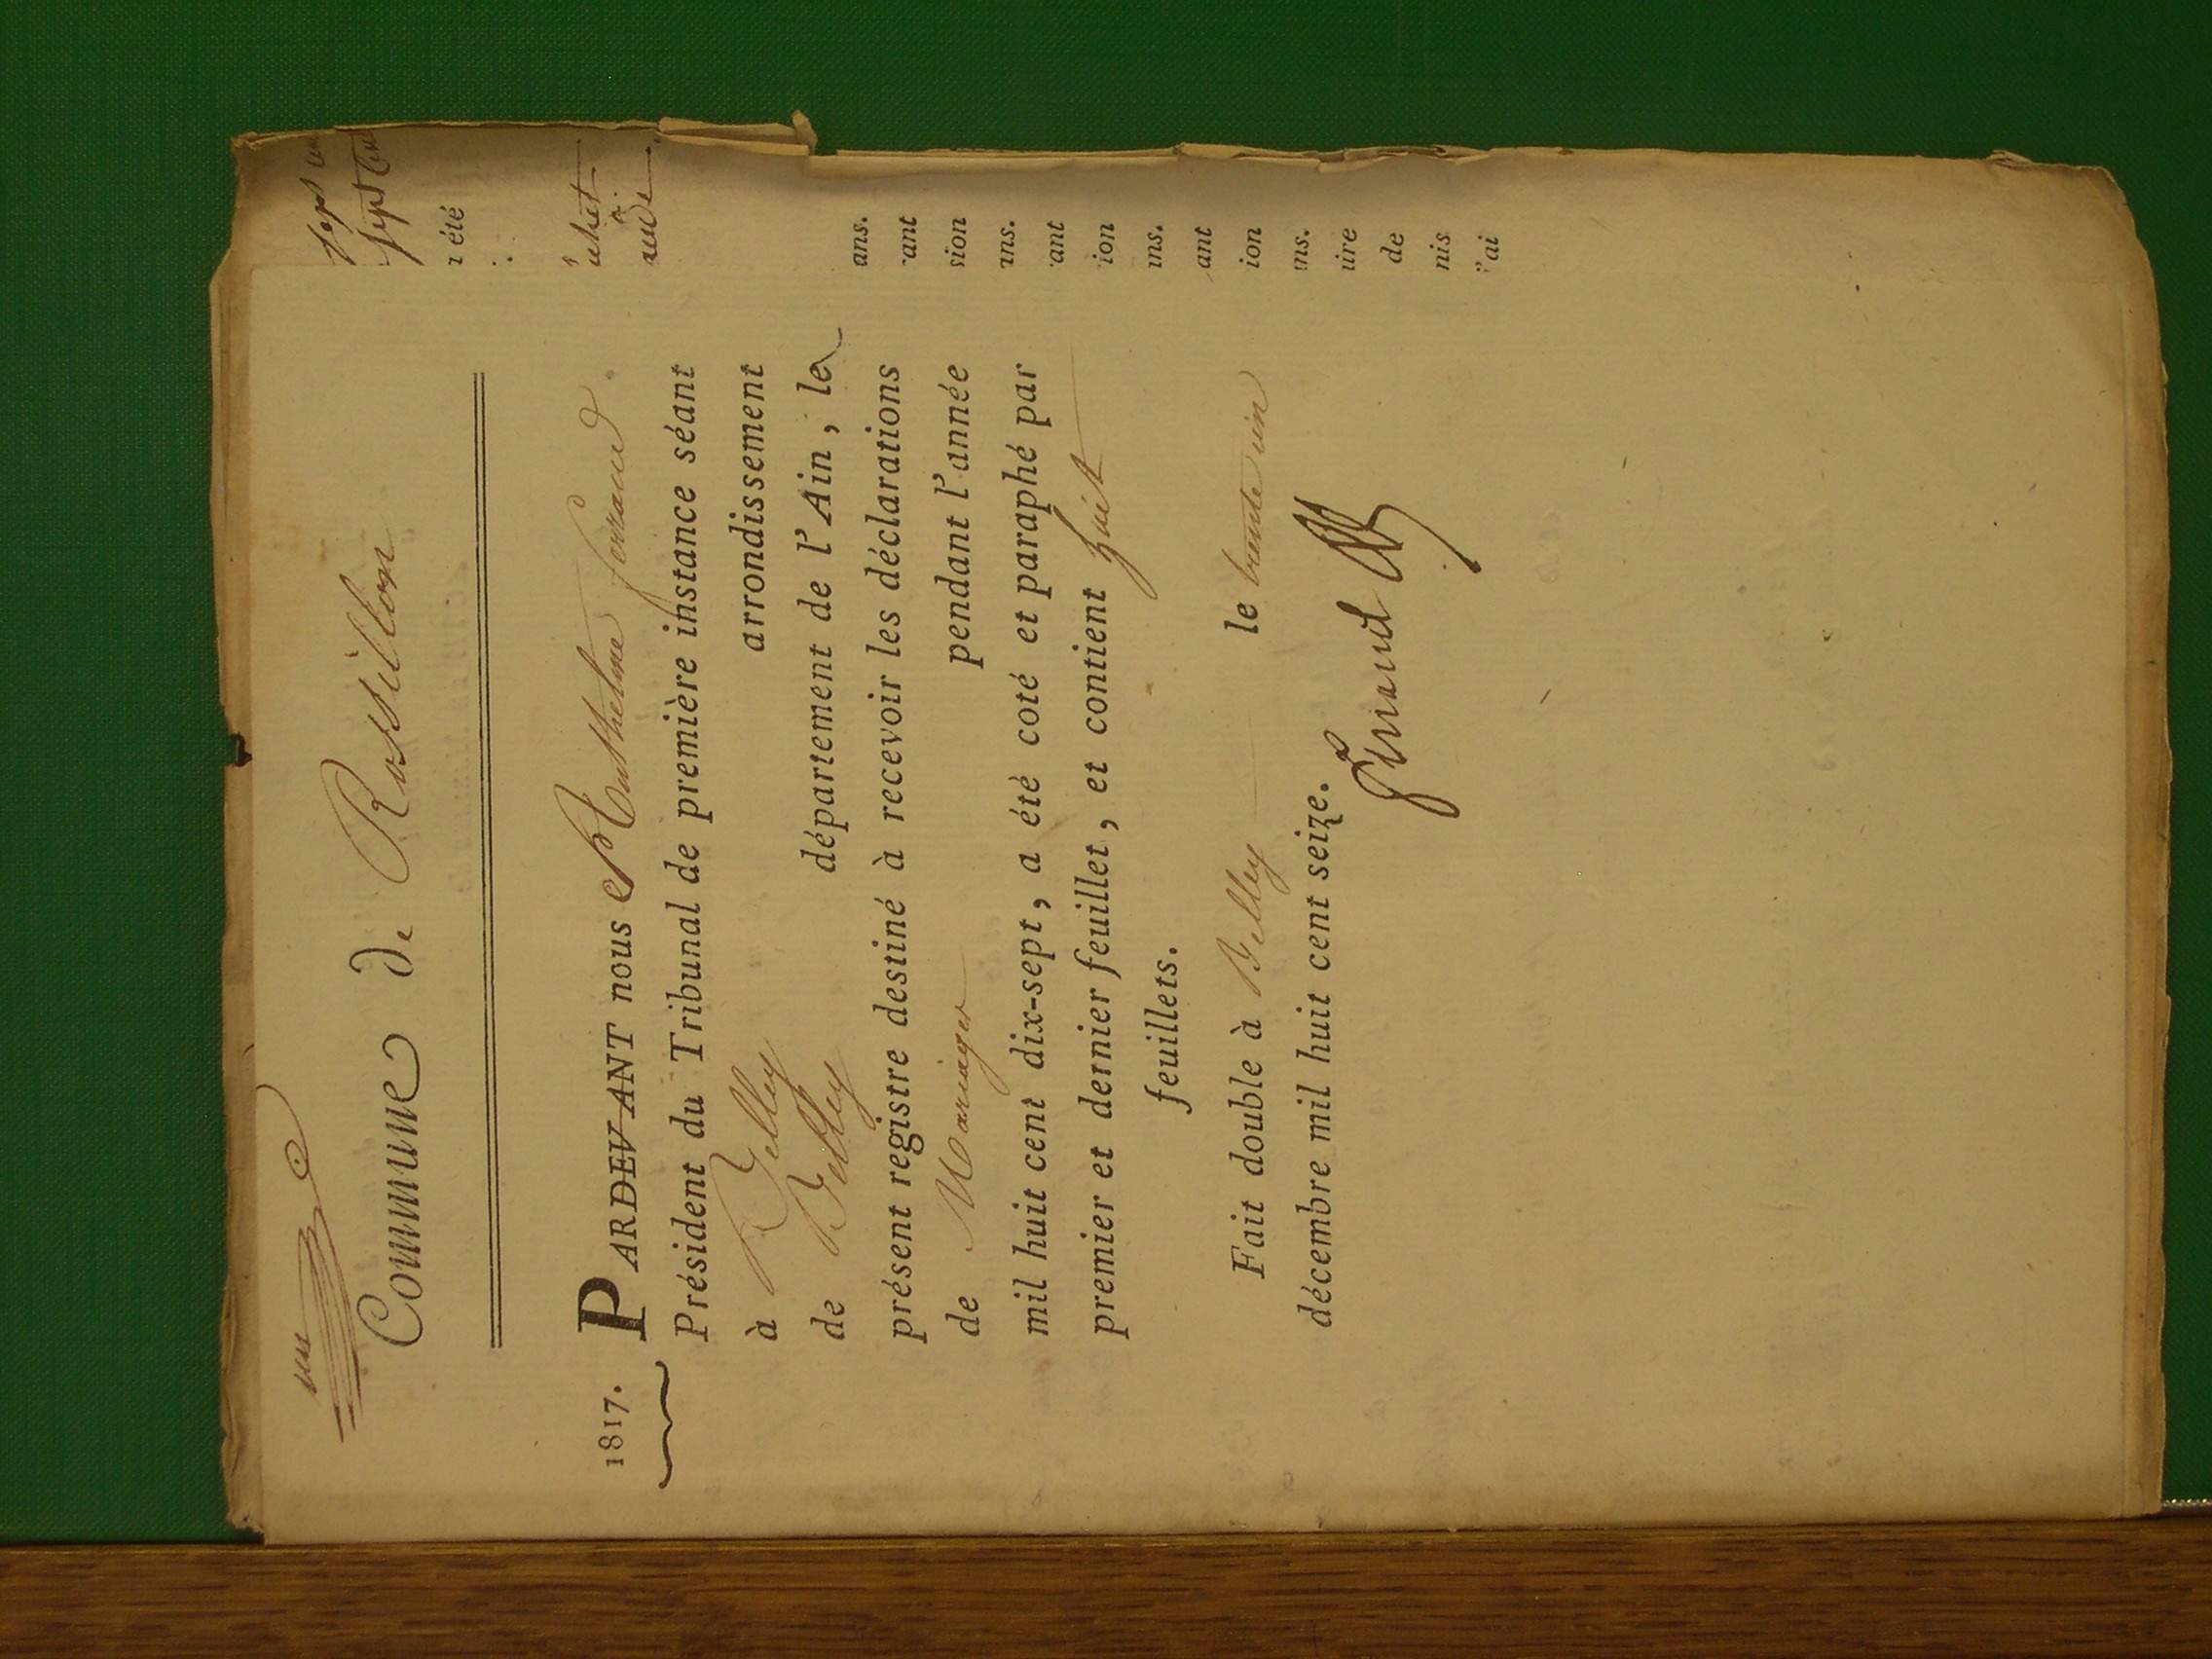 un
Commune de Rossillon
1817. PARDEVANT nous Anthelme ferraud
Président du Tribunal de première instance séant
à Belley arrondissement
de Belley département de l'Ain, le
présent registre destiné à recevoir les déclarations
de Mariages pendant l'année
mil huit cent dix-sept, a été coté et paraphé par
premier et dernier feuillet, et contient huit
feuillets.
Fait double à Belley le trente un
décembre mil huit cent seize.
ferraud
été
ans.
ant
sion
ans.
ant
ion
ins.
ant
ion
ins.
ire
de
nis
ai